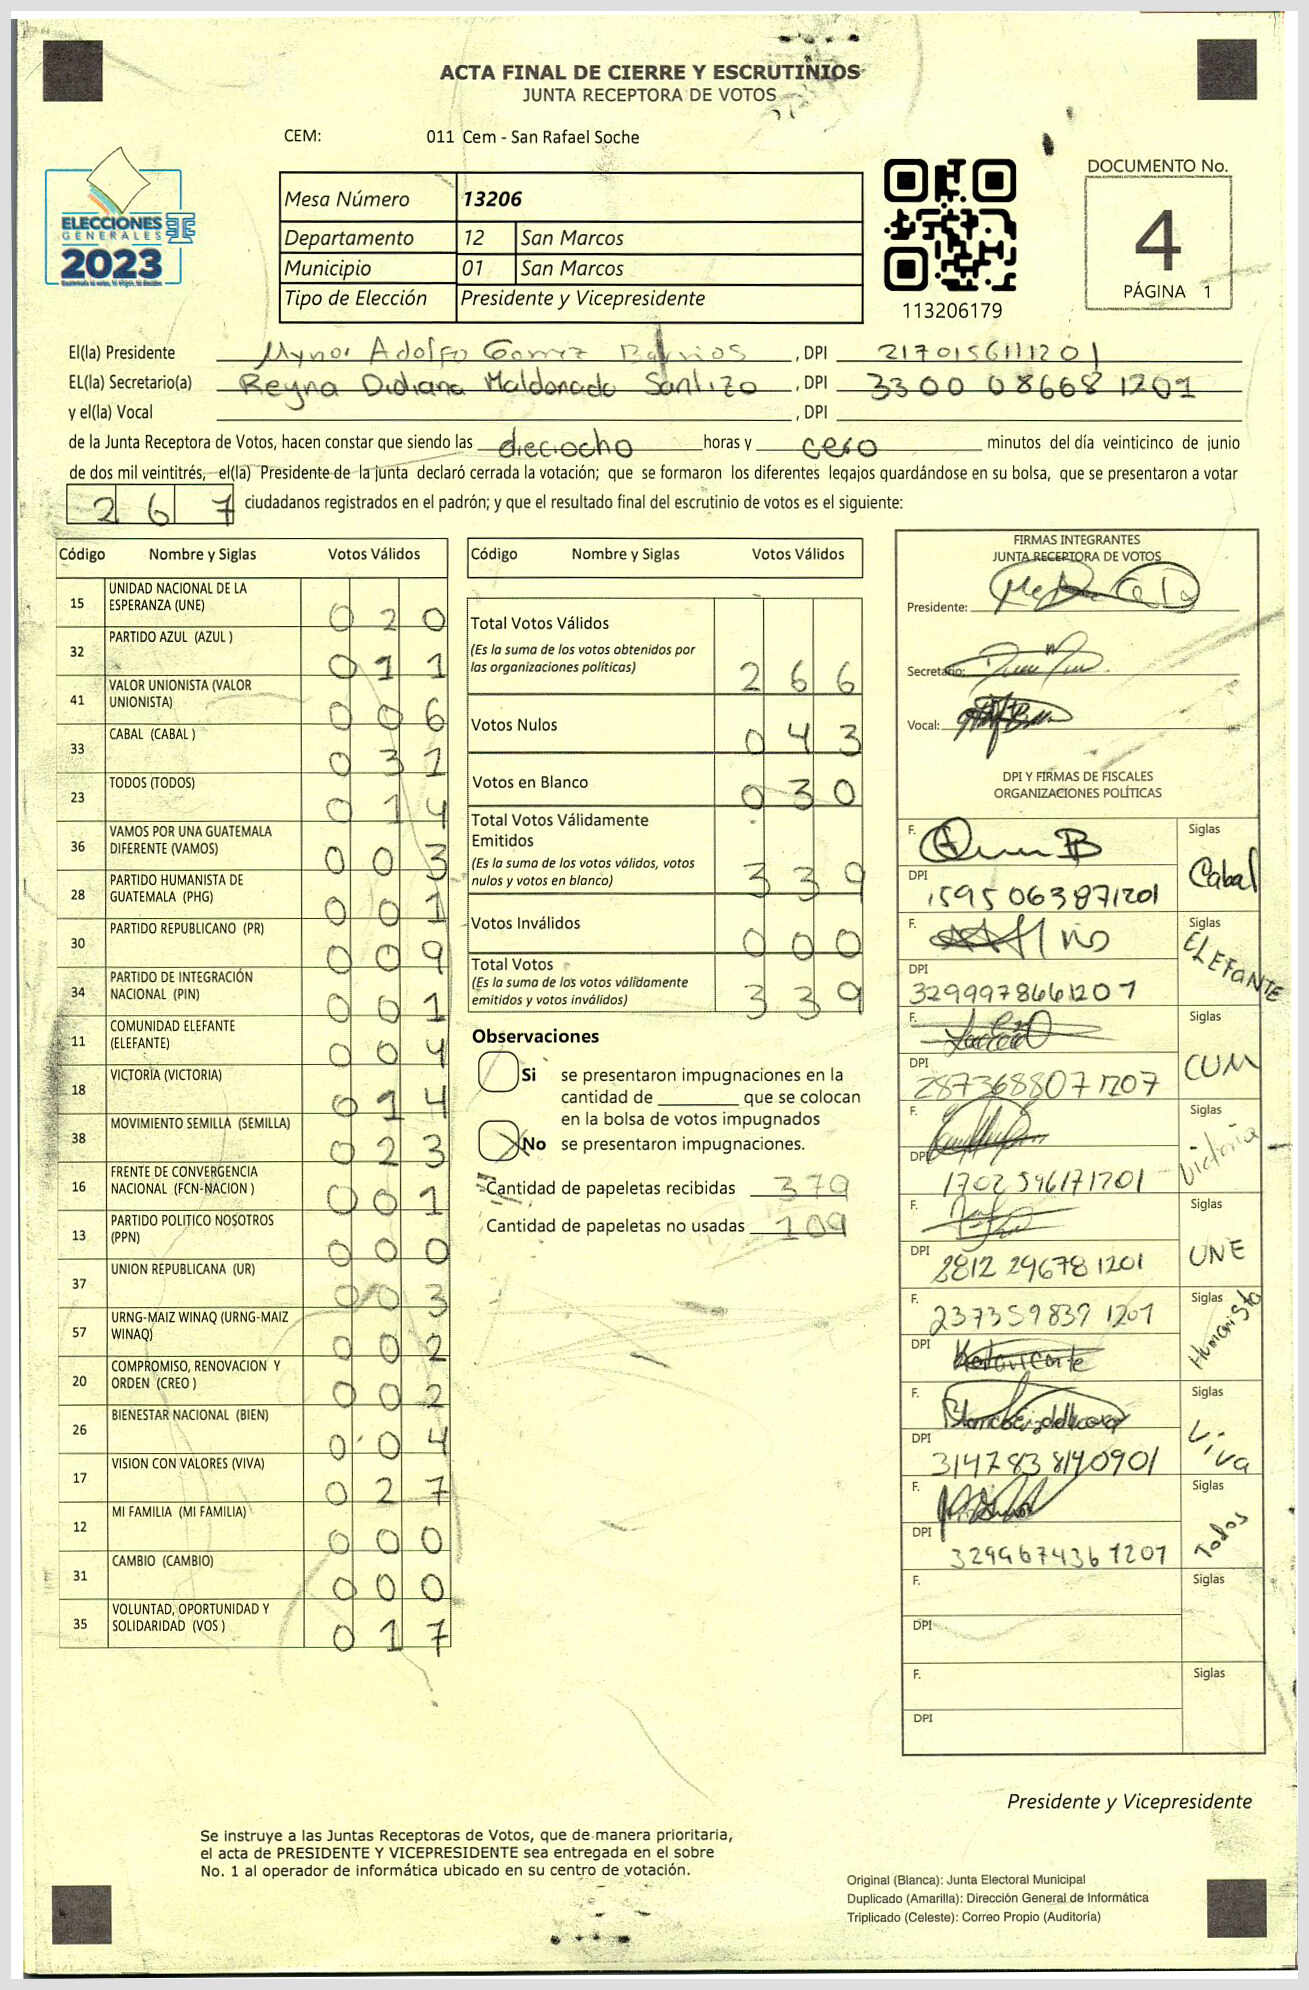 ACTA FINAL DE CIERRE Y ESCRUTINIOS
JUNTA RECEPTORA DE VOTOS
CEM: 011 Cem - San Rafael Soche
ELECCIONES
GENERALES
2023
Mesa Número 13206
Departamento 12 San Marcos
Municipio 01 San Marcos
Tipo de Elección Presidente y Vicepresidente
113206179
DOCUMENTO No.
4
PÁGINA 1
El(la) Presidente Mynor Adolfo Gomez Barrios, DPI 2170156111201
EL(la) Secretario(a) Reyna Didiana Maldonado Santizo, DPI 3300 08668 1201
y el(la) Vocal , DPI
de la Junta Receptora de Votos, hacen constar que siendo las dieciocho horas y cero minutos del día veinticinco de junio
de dos mil veintitrés, el(la) Presidente de la junta declaró cerrada la votación; que se formaron los diferentes legajos quardándose en su bolsa, que se presentaron a votar
267 ciudadanos registrados en el padrón; y que el resultado final del escrutinio de votos es el siguiente:
Código Nombre y Siglas Votos Válidos
15 UNIDAD NACIONAL DE LA ESPERANZA (UNE) 020
32 PARTIDO AZUL (AZUL ) 011
41 VALOR UNIONISTA (VALOR UNIONISTA) 006
33 CABAL (CABAL ) 031
23 TODOS (TODOS) 014
36 VAMOS POR UNA GUATEMALA DIFERENTE (VAMOS) 003
28 PARTIDO HUMANISTA DE GUATEMALA (PHG) 001
30 PARTIDO REPUBLICANO (PR) 009
34 PARTIDO DE INTEGRACIÓN NACIONAL (PIN) 001
11 COMUNIDAD ELEFANTE (ELEFANTE) 004
18 VICTORIA (VICTORIA) 014
38 MOVIMIENTO SEMILLA (SEMILLA) 023
16 FRENTE DE CONVERGENCIA NACIONAL (FCN-NACION ) 001
13 PARTIDO POLITICO NOSOTROS (PPN) 000
37 UNION REPUBLICANA (UR) 003
57 URNG-MAIZ WINAQ (URNG-MAIZ WINAQ) 002
20 COMPROMISO, RENOVACION Y ORDEN (CREO ) 002
26 BIENESTAR NACIONAL (BIEN) 004
17 VISION CON VALORES (VIVA) 027
12 MI FAMILIA (MI FAMILIA) 000
31 CAMBIO (CAMBIO) 000
35 VOLUNTAD, OPORTUNIDAD Y SOLIDARIDAD (VOS ) 017
Código Nombre y Siglas Votos Válidos
Total Votos Válidos 266
(Es la suma de los votos obtenidos por las organizaciones políticas)
Votos Nulos 043
Votos en Blanco 030
Total Votos Válidamente Emitidos 339
(Es la suma de los votos válidos, votos nulos y votos en blanco)
Votos Inválidos 000
Total Votos 339
(Es la suma de los votos válidamente emitidos y votos inválidos)
Observaciones
Si se presentaron impugnaciones en la
cantidad de ________ que se colocan
en la bolsa de votos impugnados
No se presentaron impugnaciones.
Cantidad de papeletas recibidas 379
Cantidad de papeletas no usadas 109
FIRMAS INTEGRANTES
JUNTA RECEPTORA DE VOTOS
Presidente:
Secretario:
Vocal:
DPI Y FIRMAS DE FISCALES
ORGANIZACIONES POLÍTICAS
F. Siglas Cabal
DPI 1595 063871201
F. Siglas ELEFANTE
DPI 3299978661201
F. Siglas CUM
DPI 2873688071207
F. Siglas Victoria
DPI 1702596171201
F. Siglas UNE
DPI 2812 29678 1201
F. 237359837 1201 Siglas Humanista
DPI
F. Siglas Viva
DPI 3147838190901
F. Siglas Todos
DPI 3299674361201
F. Siglas
DPI
F. Siglas
DPI
Presidente y Vicepresidente
Se instruye a las Juntas Receptoras de Votos, que de manera prioritaria,
el acta de PRESIDENTE Y VICEPRESIDENTE sea entregada en el sobre
No. 1 al operador de informática ubicado en su centro de votación.
Original (Blanca): Junta Electoral Municipal
Duplicado (Amarilla): Dirección General de Informática
Triplicado (Celeste): Correo Propio (Auditoría)